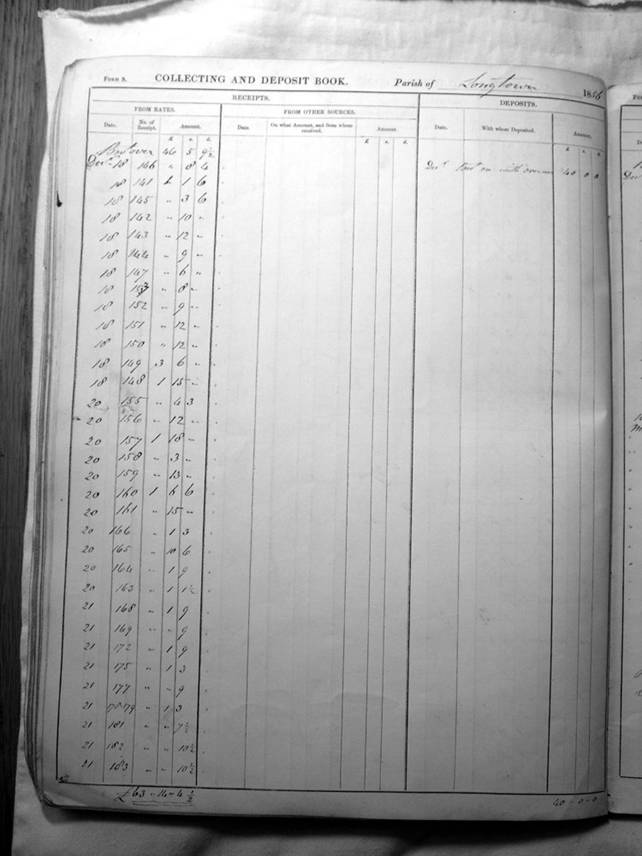 Form S. COLLECTING AND DEPOSIT BOOK. Parish of Longtown 18
RECEIPTS. DEPOSITS.
FROM RATES. FROM OTHER SOURCES.
Date. No. of Receipt. Amount. Date. On what Account, and from whom received. Amount. Date. With whom Deposited. Amount.
£ s. d. £ s. d. £ s. d.
Brot over 46 5 9½
Decr 18 146 " 8 4 Decr 40 0 0
18 141 1 6
18 145 " 3 6
18 142 " 10 "
18 143 " 12 "
18 144 " 9 "
18 147 " 6 "
18 153 " 8 "
18 152 " 9 "
18 151 " 12 "
18 150 " 12 "
18 149 3 6 "
18 148 1 15 "
20 155 " 4 3
20 156 " 12 "
20 157 1 18 "
20 158 " 3 "
20 159 " 13 "
20 160 1 6
20 161 " 15 "
20 166 " 1 3
20 165 " 10 6
20 164 " 1 9
20 163 " 1 1½
21 168 " 1 9
21 169 " " 9
21 172 " 1 9
21 175 " 1 3
21 177 " " 9
21 78-79 " 1 3
21 181 " " 7½
21 182 " " 10½
21 183 " " 10½
£63-14-4½ 40-0-0